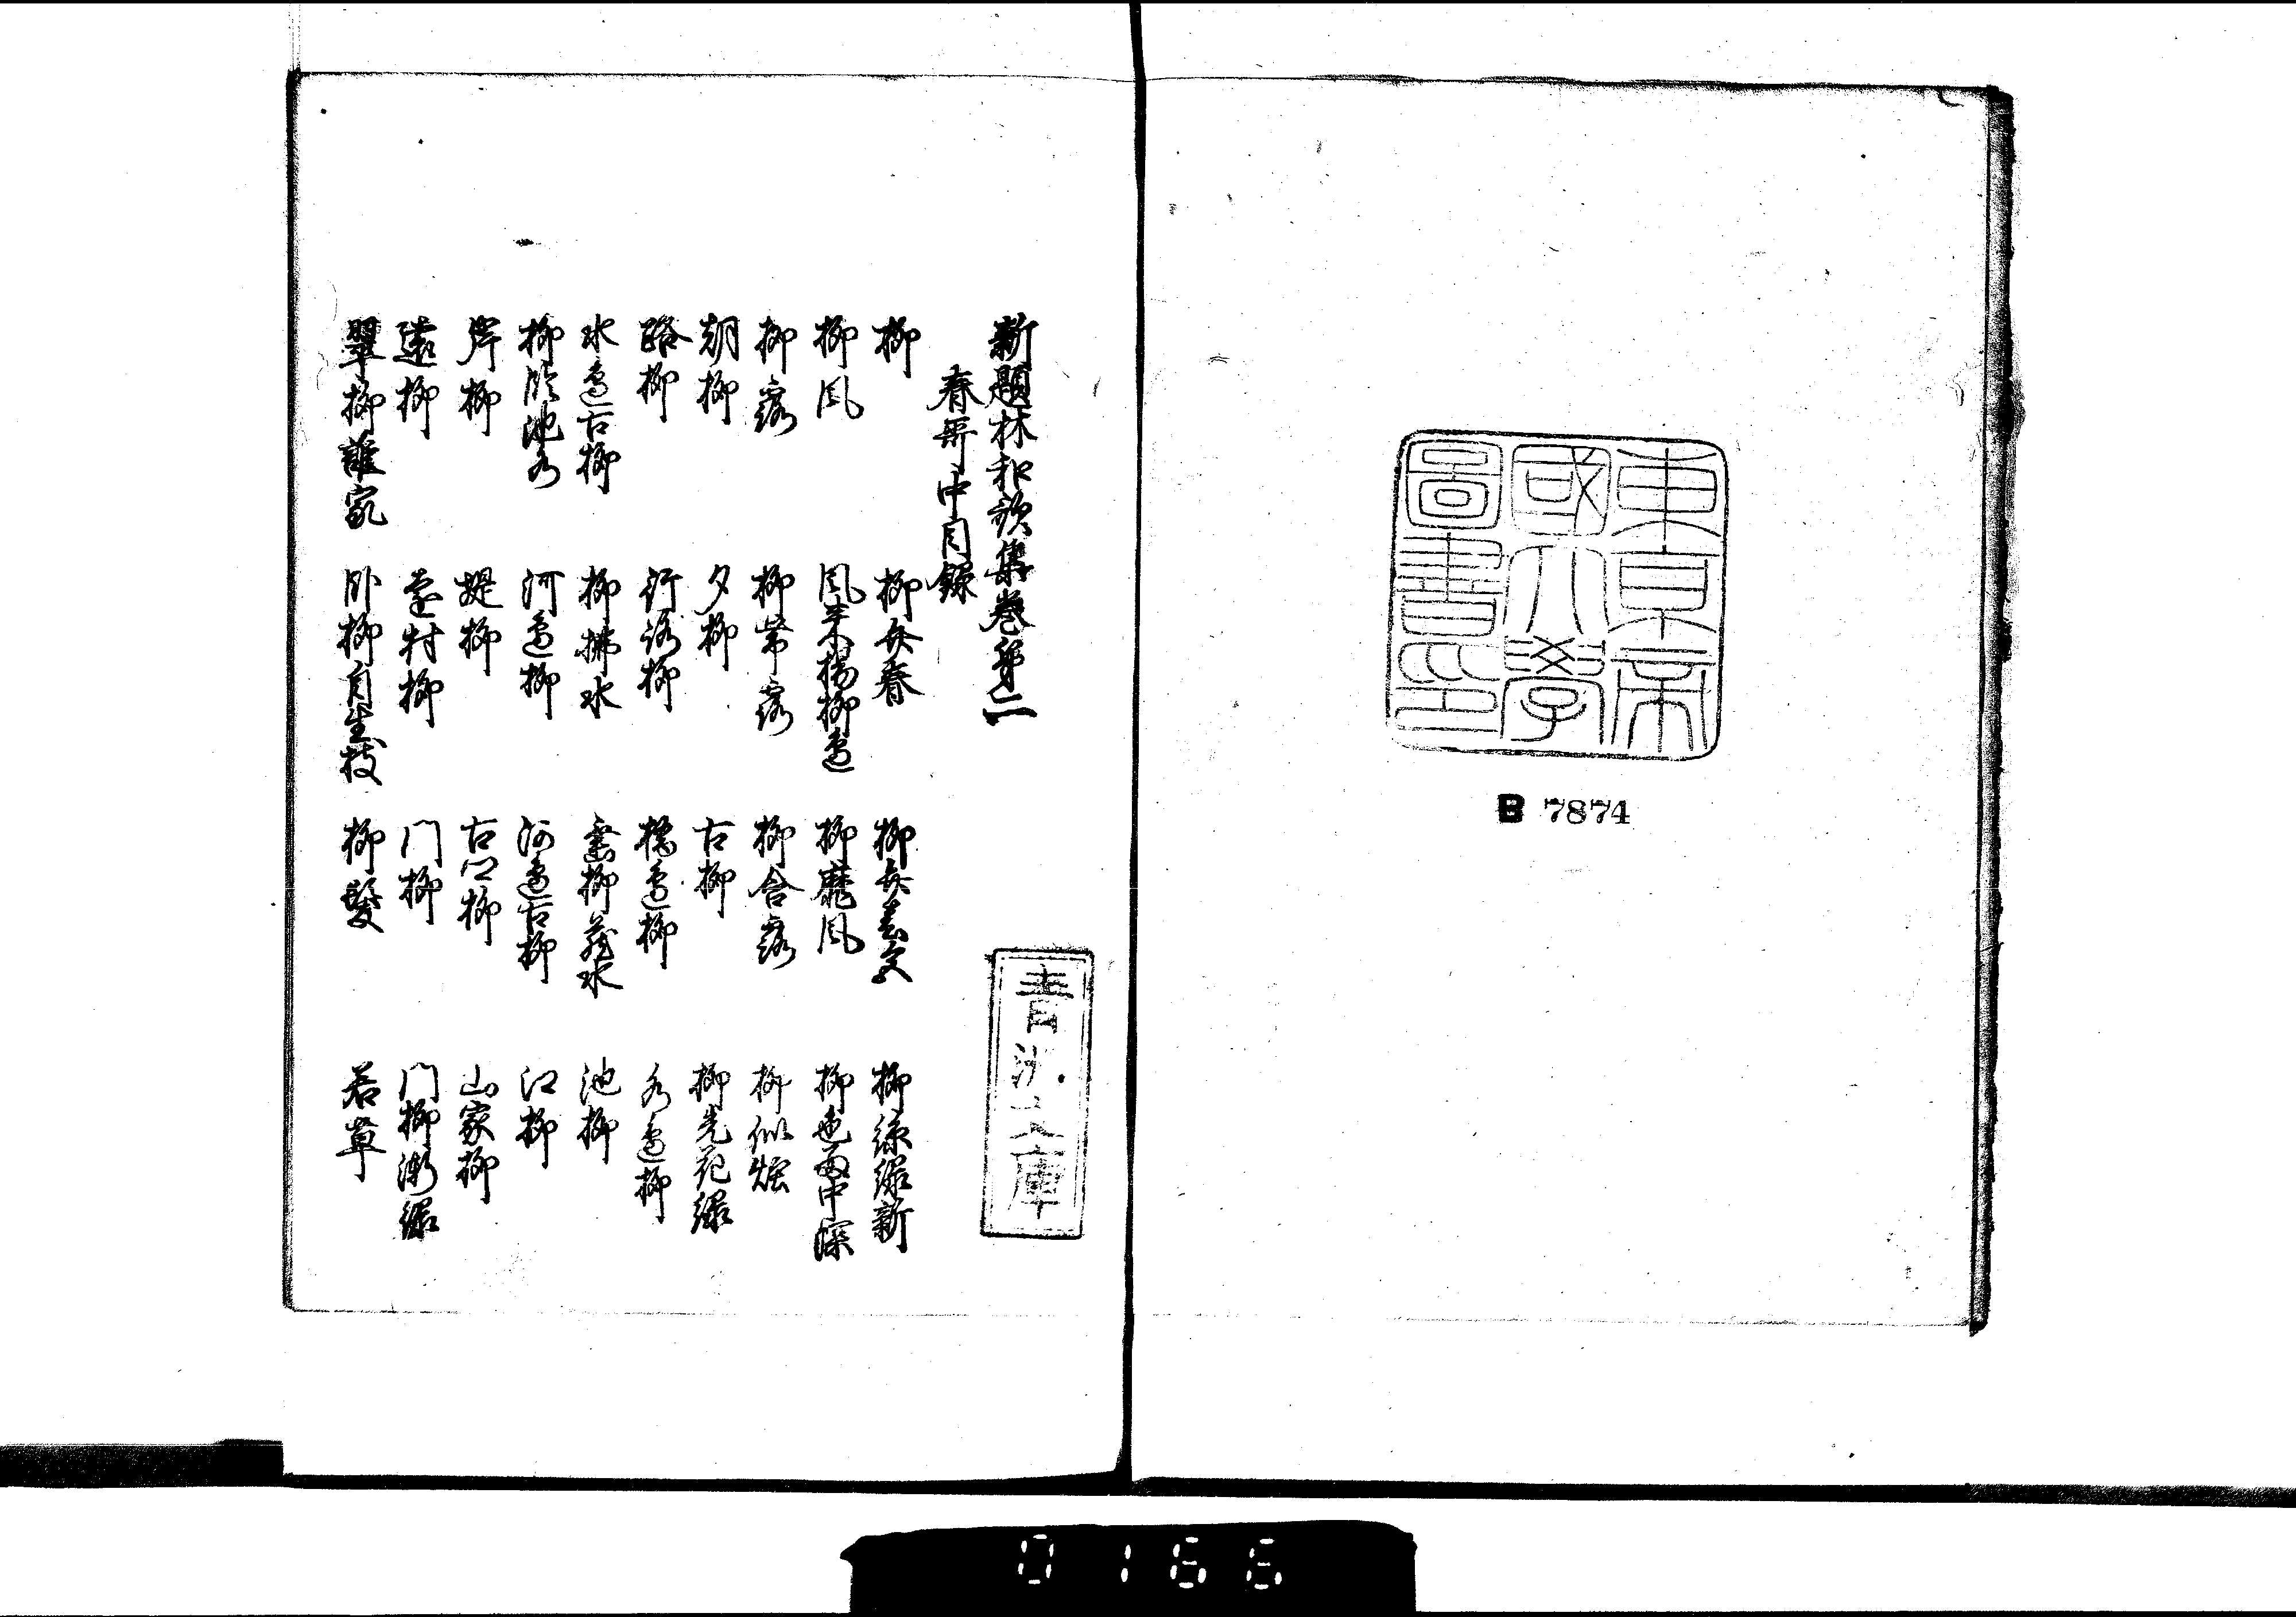 東京帝
國大學
圖書印
B 7874
新題林和歌集巻第二
春部中目録
青洲文庫
柳 柳弁春 柳弁春変 柳緑緑新
柳風 風来楊柳邊 柳靡風 柳色雨中深
柳露 柳帯露 柳含露 柳似煙
朝柳 夕柳 古柳 柳先花緑
路柳 行路柳 橋邊柳 水邊柳
水邊古柳 柳拂水 垂柳蔵水 池柳
柳臨池水 河邊柳 河邊古柳 江柳
岸柳 堤柳 古江柳 山家柳
遠柳 遠村柳 门柳 门柳漸緑
翠柳誰家 臥柳自生枝 柳髮 若草
0166